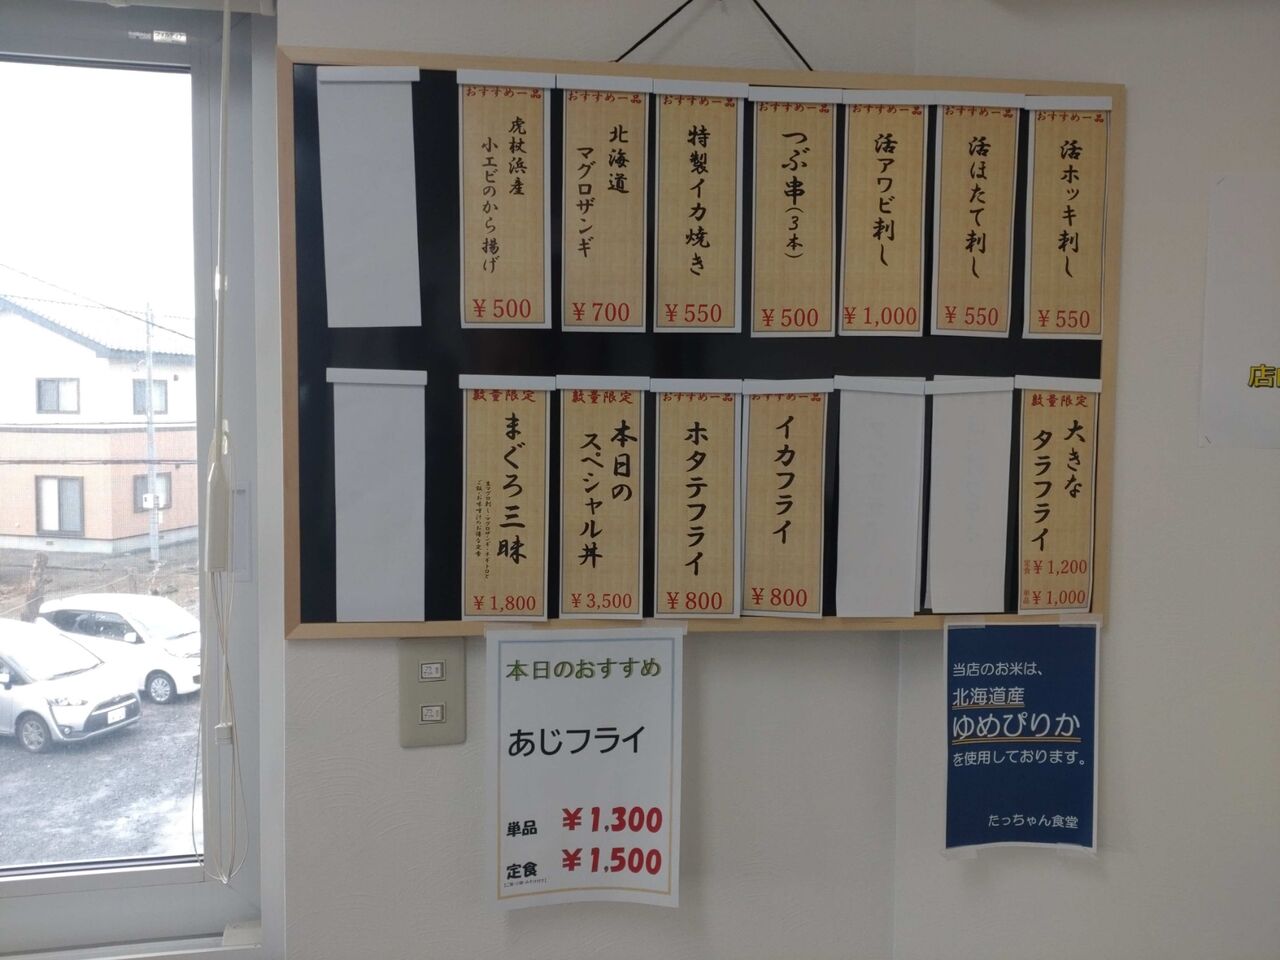 おすすめ一品
活ホッキ刺し
¥550
おすすめ一品
活ほたて刺し
¥550
おすすめ一品
活アワビ刺し
¥1,000
おすすめ一品
つぶ串(3本)
¥500
おすすめ一品
特製イカ焼き
¥550
おすすめ一品
北海道
マグロザンギ
¥700
おすすめ一品
虎杖浜産
小エビのから揚げ
¥500
数量限定
大きな
タラフライ
定食 ¥1,200
単品 ¥1,000
おすすめ一品
イカフライ
¥800
おすすめ一品
ホタテフライ
¥800
数量限定
本日の
スペシャル丼
¥3,500
数量限定
まぐろ三昧
¥1,800
本日のおすすめ
あじフライ
単品 ¥1,300
定食 ¥1,500
当店のお米は、
北海道産
ゆめぴりか
を使用しております。
たっちゃん食堂